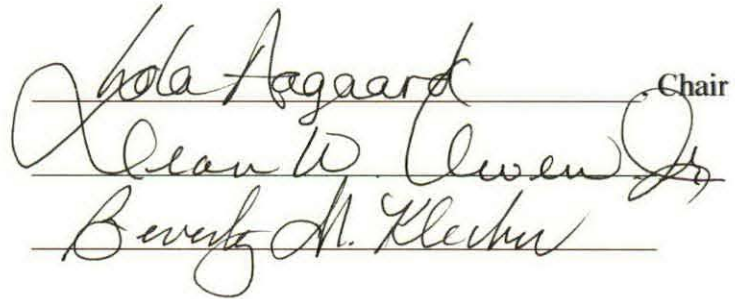 Lola Aagaard, Chair
Dean W. Owen Jr,
Beverly M. Klecker